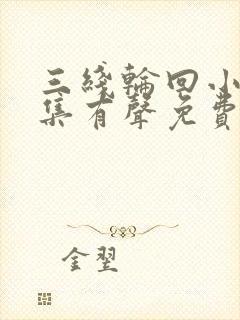 三綫輪回小
集有聲免費
金翌